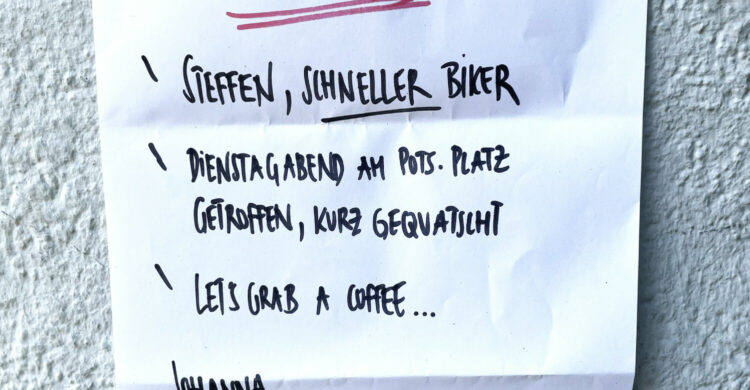 \ STEFFEN, SCHNELLER BIKER
\ DIENSTAGABEND AM POTS. PLATZ
GETROFFEN, KURZ GEQUATSCHT
\ LETS GRAB A COFFEE...
JOHANNA